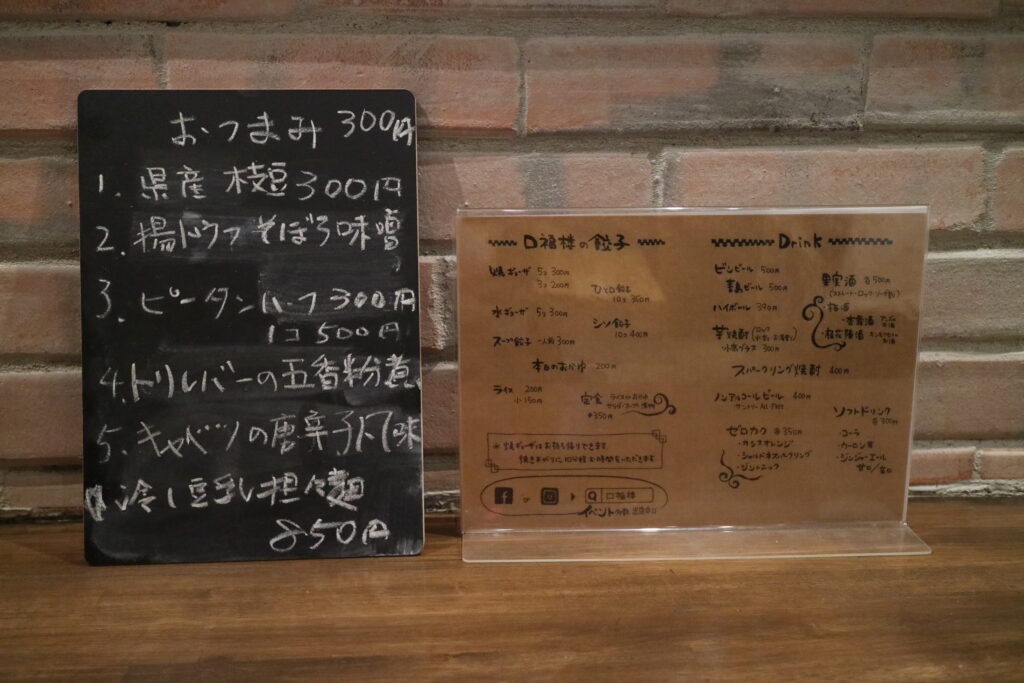 おつまみ 300円
1. 県産 枝豆 300円
2. 揚ドウフ そぼろ味噌
3. ピータン ハーフ 300円
1コ 500円
4. トリレバーの五香粉煮
5. キャベツの唐辛子
冷し豆乳担々麺
850円
口福楼の餃子
焼ギョーザ 5コ 300円
3コ 200円
ひと口餃子
10コ 350円
水ギョーザ 5コ 300円
シソ餃子
10コ 400円
スープ餃子 一人前 300円
本日のおかゆ 200円
ライス 200円
小 150円
定食
+350円
※焼ギョーザはお持ち帰りできます
焼きあがりに10分程お時間をいただきます
f or ▶ Q 口福楼
イベント
Drink
ビンビール 500円
青島ビール 500円
ハイボール 390円
芋焼酎
300円
スパークリング焼酎 400円
ノンアルコールビール 400円
サントリー All-Free
ゼロカク 各350円
・カシスオレンジ
・シャルドネスパークリング
・ジントニック
果実酒 各500円
(ストレート・ロック・ソーダ割)
・梅酒
・杏露酒
・桂花陳酒
ソフトドリンク
各300円
・コーラ
・ウーロン茶
・ジンジャーエール
甘口/辛口